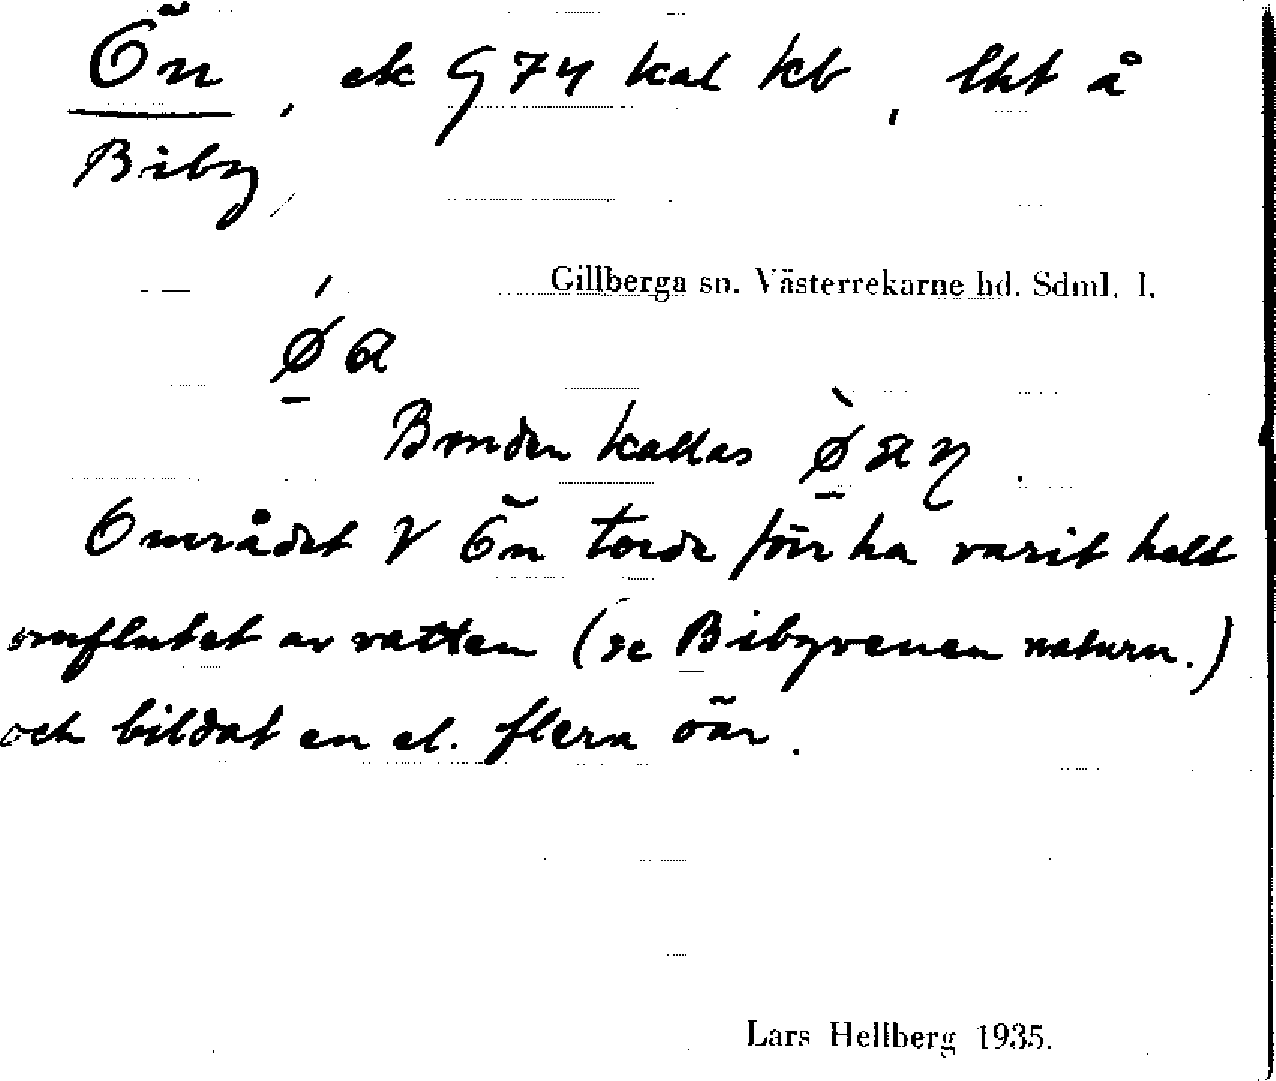 Ön, ek G74 kal kb, lht å
Biby,
Gillberga sn. Västerrekarne hd. Sdml. l.
Bonden kallas
Området V Ön torde förr ha varit helt
omflutet av vatten (se Bibyvenen naturn.)
och bildat en el. flera öar.
Lars Hellberg 1935.